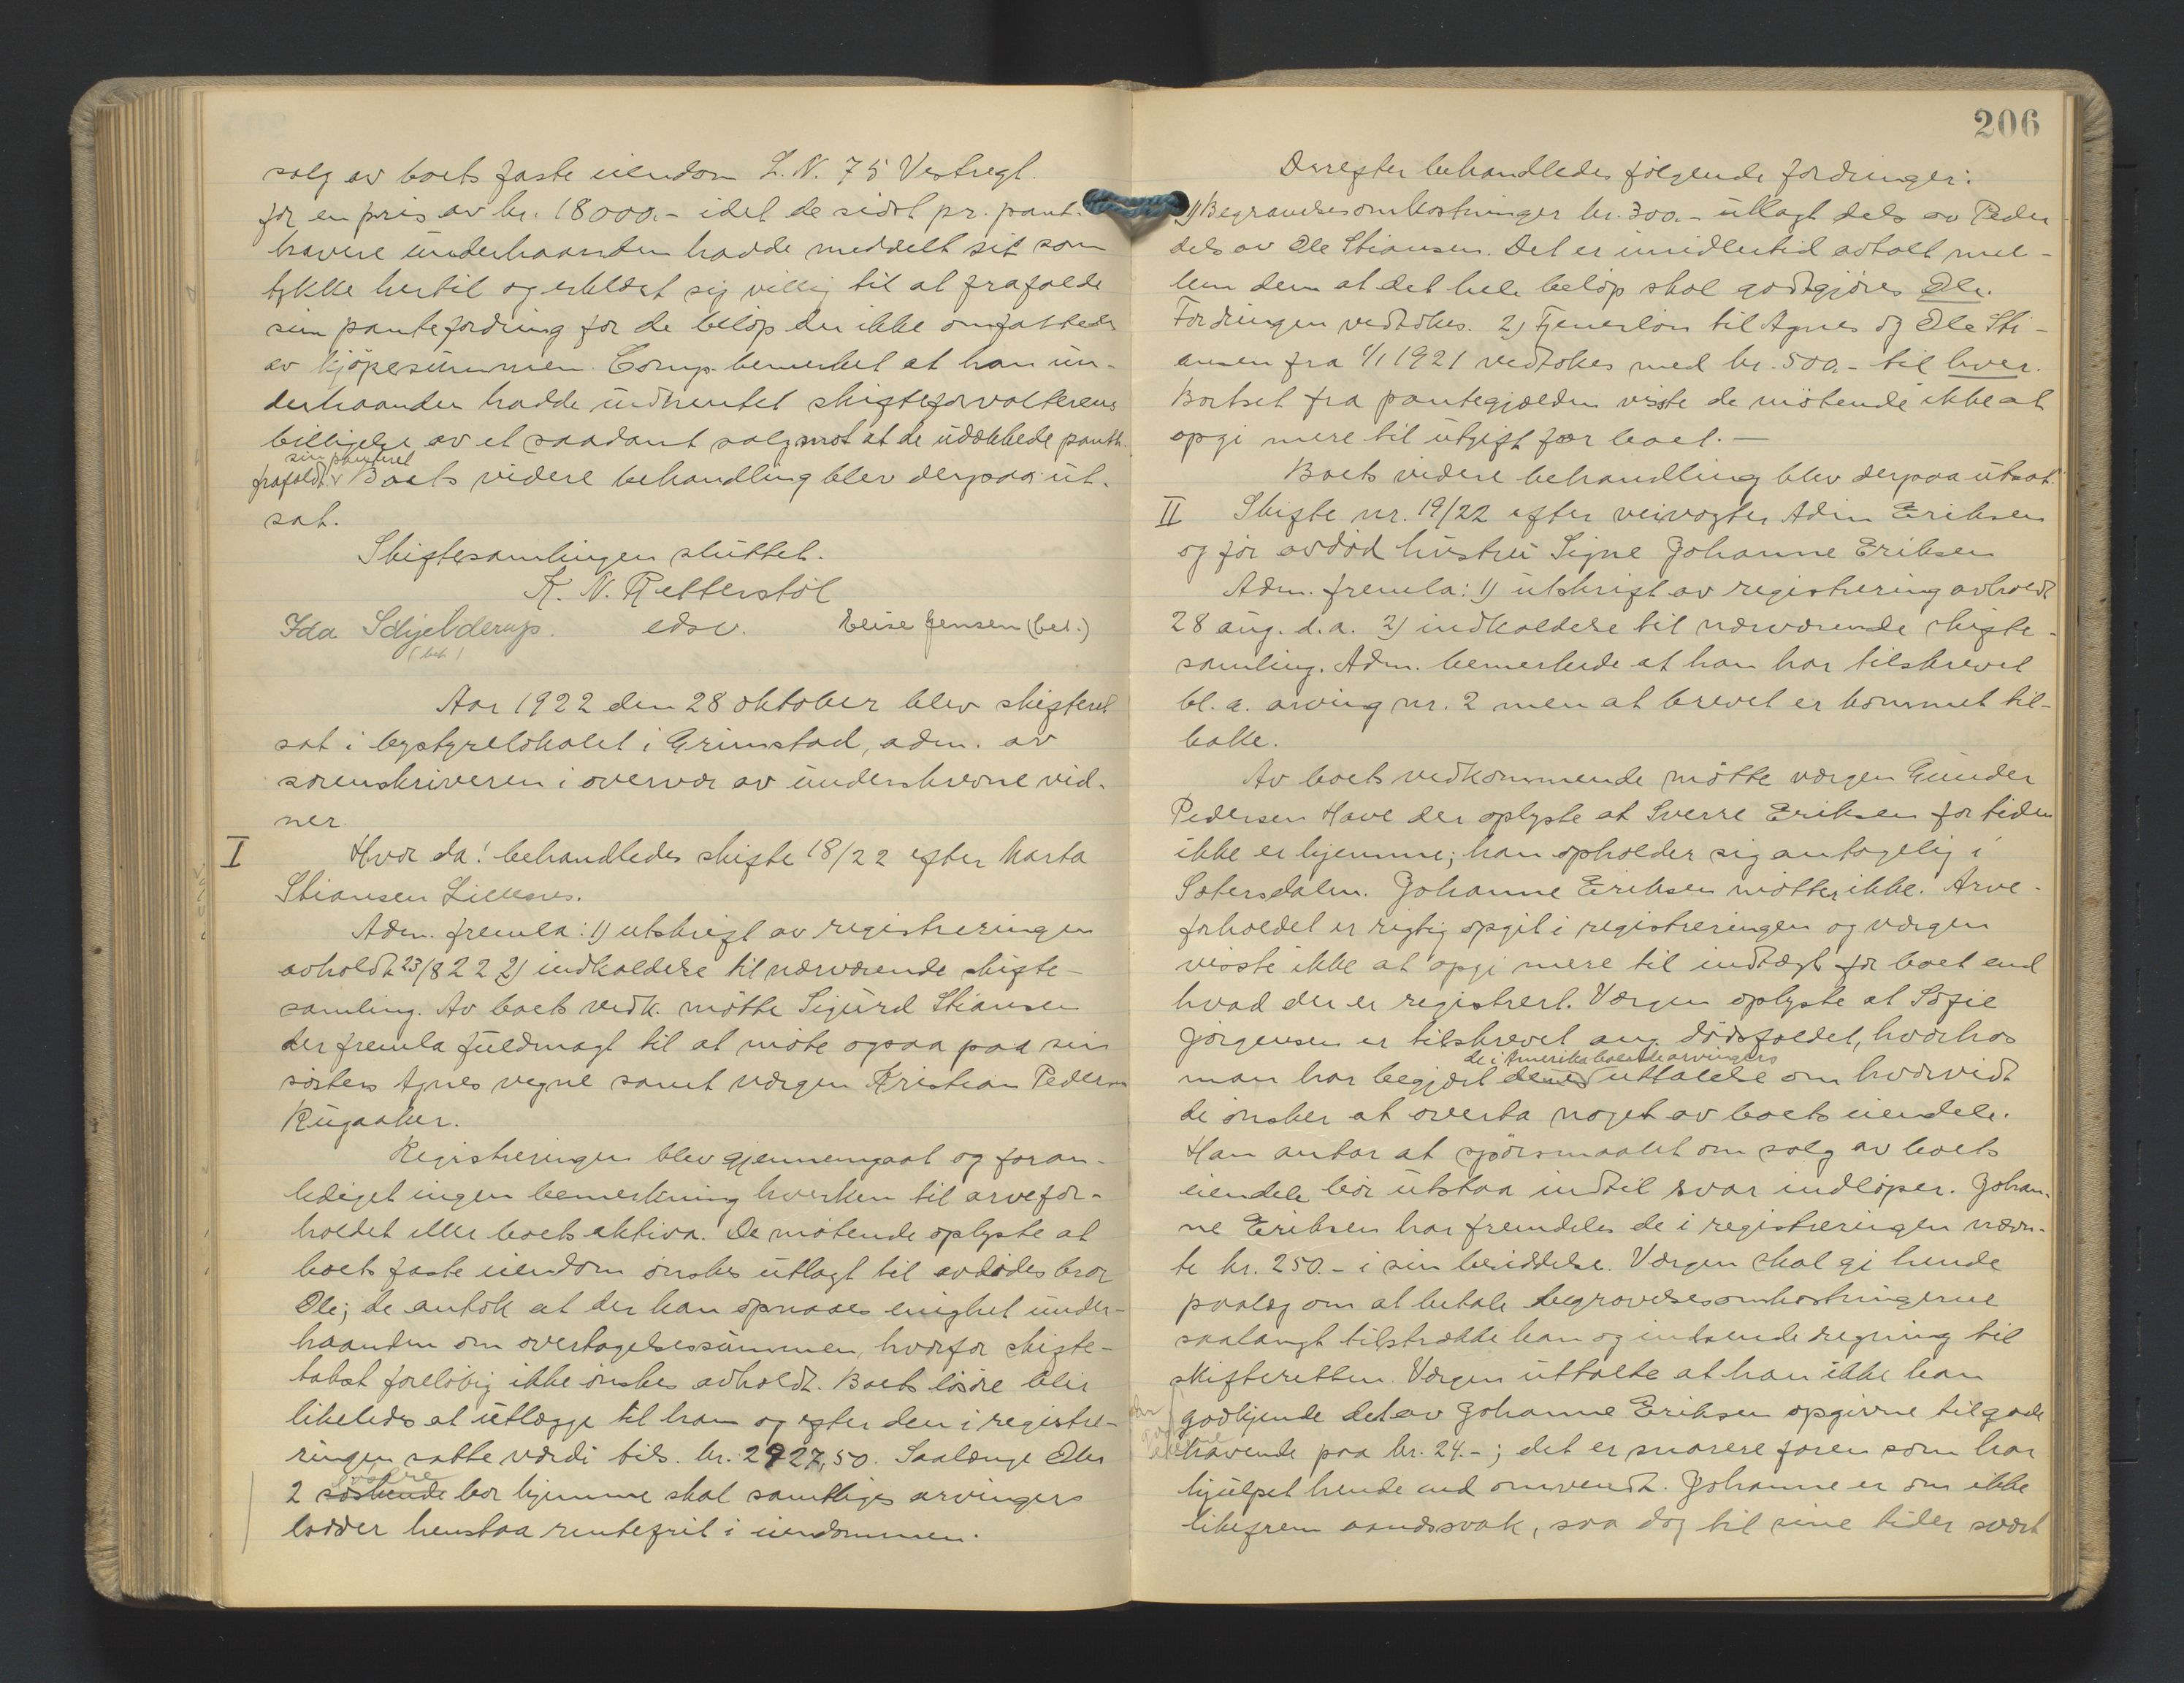 salg av boets faste eiendom L. N. 75 Vestregt.
for en pris av kr. 18000.- idet de sidst pr. pant-
havere underhaanden hadde meddelt sit sam
tykke hertil og erklært sig villig til at frafalde
sin pantefordring for de beløp der ikke omfattedes
av kjøpesummen. Comp. bemerket at han un-
derhaanden hadde indhentet skifteforvalterens
billigelse av et saadant salg mot at de udækkede panth.
sin panteret
frafaldt. Boets videre behandling blev derpaa ut-
sat.
Skiftesamlingen sluttet.
K. N. Retterstøl
Ida Schjelderup. edsv. Elise Jensen (bes.)
Aar 1922 den 28 oktober blev skifteret
sat i bystyrelokalet i Grimstad, adm. av
sorenskriveren i overvær av underskrevne vid-
ner
I Hvor da! behandledes skifte 18/22 efter Marta
Stiansen Lillesnes.
Adm. fremla: 1) utskrift av registreringen
avholdt 23/8 22 2) indkaldelse til nærværende skifte-
samling. Av boets vedk. møtte Sigurd Stiansen
der fremla fuldmagt til at møte ogsaa paa sin
søsters Agnes vegne samt værgen Kristian Pedersen
Rugaaker.
Registreringen blev gjennemgaat og foran-
lediget ingen bemerkning hverken til arvefor-
holdet eller boets aktiva. De møtende oplyste at
boets faste eiendom ønskes utlagt til avdødes bror
Ole; de antok at der kan opnaaes enighet under-
haanden om overtagelsessummen, hvorfor skifte-
takst foreløbig ikke ønskes avholdt. Boets løsøre blir
likeledes at utlægge til ham og efter den i registre-
ringen satte værdi tils. kr. 2927,50. Saalænge Oles
2 søskende bor hjemme skal samtliges arvingers
lodder henstaa rentefrit i eiendommen.
206
Derefter behandledes følgende fordringer:
1) Begravelsesomkostninger kr. 300.- utlagt dels av Peder
dels av Ole Stiansen. Det er imidlertid avtalt mel-
lem dem at det hele beløp skal godtgjøres Ole.
Fordringen vedtokes. 2) Tjenerløn til Agnes og Ole Sti-
ansen fra 1/1 1921 vedtokes med kr. 500.- til hver.
Bortset fra pantegjælden visste de møtende ikke at
opgi mere til utgift for boet.-
Boets videre behandling blev derpaa utsat.
II Skifte nr. 19/22 efter veivogter Adin Eriksen
og før avdød hustru Signe Johanne Eriksen
Adm. fremla: 1) utskrift av registrering avholdt
28 aug. d.a. 2) indkaldelse til nærværende skifte-
samling. Adm. bemerkede at han har tilskrevet
bl. a. arving nr. 2 men at brevet er kommet til-
bake.
Av boets vedkommende møtte værgen Gunder
Pedersen Have der oplyste at Sverre Eriksen for tiden
ikke er hjemme; han opholder sig antagelig i
Sætersdalen. Johanne Eriksen møtte ikke. Arve-
forholdet er rigtig opgit i registreringen og værgen
visste ikke at opgi mere til indtægt for boet end
hvad der er registrert. Værgen oplyste at Sofie
Jørgensen er tilskrevet ang. dødsfaldet, hvorhos
de i Amerika boende arvingers
man har begjært deres uttalelse om hvorvidt
de ønsker at overta noget av boets eiendele.
Han antar at spørsmaalet om salg av boets
eiendele bør utstaa indtil svar indløper. Johan-
ne Eriksen har fremdeles de i registreringen nævn-
te kr. 250.- i sin besiddelse. Værgen skal gi hende
paalæg om at betale begravelsesomkostningerne
saalangt tilstrække kan og indsende regning til
skifteretten. Værgen uttalte at han ikke kan
godkjende det av Johanne Eriksen opgivne tilgode
havende paa kr. 24.-; det er snarere faren som har
hjulpet hende end omvendt. Johanne er om ikke
likefrem aandssvak, saa dog til sine tider svært